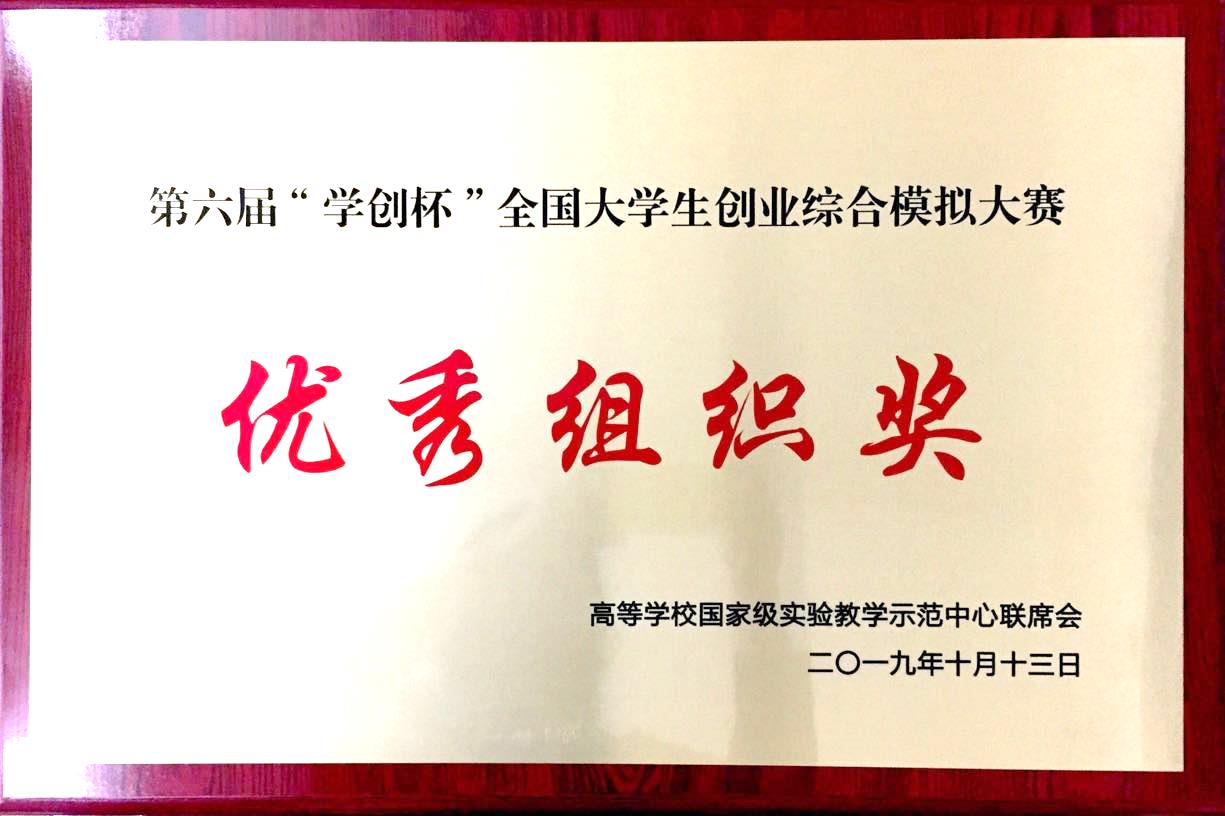 第六届“学创杯”全国大学生创业综合模拟大赛
优秀组织奖
高等学校国家级实验教学示范中心联席会
二〇一九年十月十三日